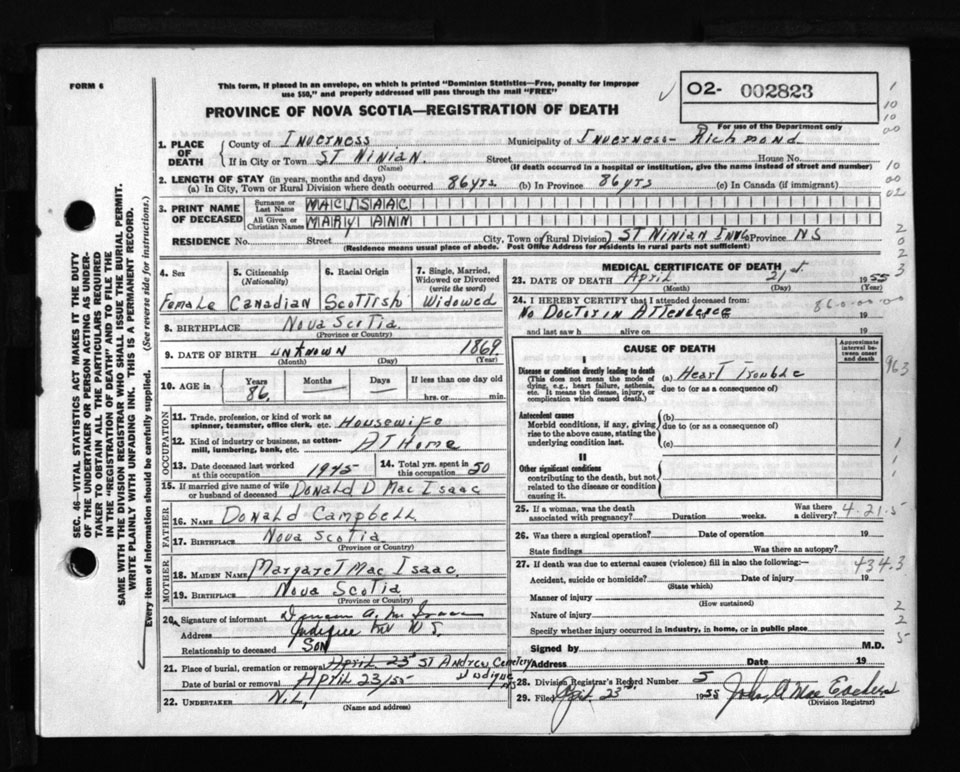 FORM 6
This form, if placed in an envelope, on which is printed "Dominion Statistics—Free, penalty for improper
use $50," and properly addressed will pass through the mail "FREE"
PROVINCE OF NOVA SCOTIA—REGISTRATION OF DEATH
02- 002823
For use of the Department only
1. PLACE OF DEATH
County of Inverness Municipality of Inverness- Richmond
If in City or Town ST Ninian. Street House No.
(Name) (If death occurred in a hospital or institution, give the name instead of street and number)
2. LENGTH OF STAY (in years, months and days)
(a) In City, Town or Rural Division where death occurred 86 yrs (b) In Province 86 yrs (c) In Canada (if immigrant)
3. PRINT NAME OF DECEASED
Surname or Last Name MACISAAC
All Given or Christian Names MARY ANN
RESIDENCE No. Street City, Town or (Rural Division) ST Ninian Inv. Province NS
(Residence means usual place of abode. Post Office Address for residents in rural parts not sufficient)
4. Sex 5. Citizenship (Nationality) 6. Racial Origin 7. Single, Married, Widowed or Divorced (write the word)
Female Canadian Scottish Widowed
8. BIRTHPLACE Nova Scotia
(Province or Country)
9. DATE OF BIRTH unknown 1869
(Month) (Day) (Year)
10. AGE in Years Months Days If less than one day old
86 hrs. or min.
OCCUPATION
11. Trade, profession, or kind of work as spinner, teamster, office clerk, etc. Housewife
12. Kind of industry or business, as cotton-mill, lumbering, bank, etc. At Home
13. Date deceased last worked at this occupation 1945 14. Total yrs. spent in this occupation 50
15. If married give name of wife or husband of deceased Donald D Mac Isaac
FATHER
16. NAME Donald Campbell
17. BIRTHPLACE Nova Scotia
(Province or Country)
MOTHER
18. MAIDEN NAME Margaret Mac Isaac
19. BIRTHPLACE Nova Scotia
(Province or Country)
20. Signature of informant
Address Inv N S
Relationship to deceased Son
21. Place of burial, cremation or removal April 23 St Andrew Cemetery
Date of burial or removal April 23/55
22. UNDERTAKER Nil,
(Name and address)
MEDICAL CERTIFICATE OF DEATH
23. DATE OF DEATH April 21st 1955
(Month) (Day) (Year)
24. I HEREBY CERTIFY that I attended deceased from:
No Doctor in Attendance 19
and last saw h alive on 19
CAUSE OF DEATH
Approximate interval between onset and death
I
Disease or condition directly leading to death (a) Heart Trouble
(This does not mean the mode of dying, e.g., heart failure, asthenia, etc. It means the disease, injury, or complication which caused death.) due to (or as a consequence of)
Antecedent causes (b)
Morbid conditions, if any, giving rise to the above cause, stating the underlying condition last. due to (or as a consequence of)
(c)
II
Other significant conditions
contributing to the death, but not related to the disease or condition causing it.
25. If a woman, was the death associated with pregnancy? Duration weeks. Was there a delivery? 4-21-5
26. Was there a surgical operation? Date of operation 19
State findings Was there an autopsy?
27. If death was due to external causes (violence) fill in also the following:— 434.3
Accident, suicide or homicide? Date of injury 19
(State which)
Manner of injury
(How sustained)
Nature of injury
Specify whether injury occurred in industry, in home, or in public place
Signed by M.D.
Address Date 19
28. Division Registrar's Record Number 5
29. Filed 23rd, 1955
(Division Registrar)
SEC. 46—VITAL STATISTICS ACT MAKES IT THE DUTY
OF THE UNDERTAKER OR PERSON ACTING AS UNDER-
TAKER TO OBTAIN ALL THE PARTICULARS REQUIRED
IN THE "REGISTRATION OF DEATH" AND TO FILE THE
SAME WITH THE DIVISION REGISTRAR WHO SHALL ISSUE THE BURIAL PERMIT.
WRITE PLAINLY WITH UNFADING INK. THIS IS A PERMANENT RECORD.
Every item of information should be carefully supplied. (See reverse side for instructions.)